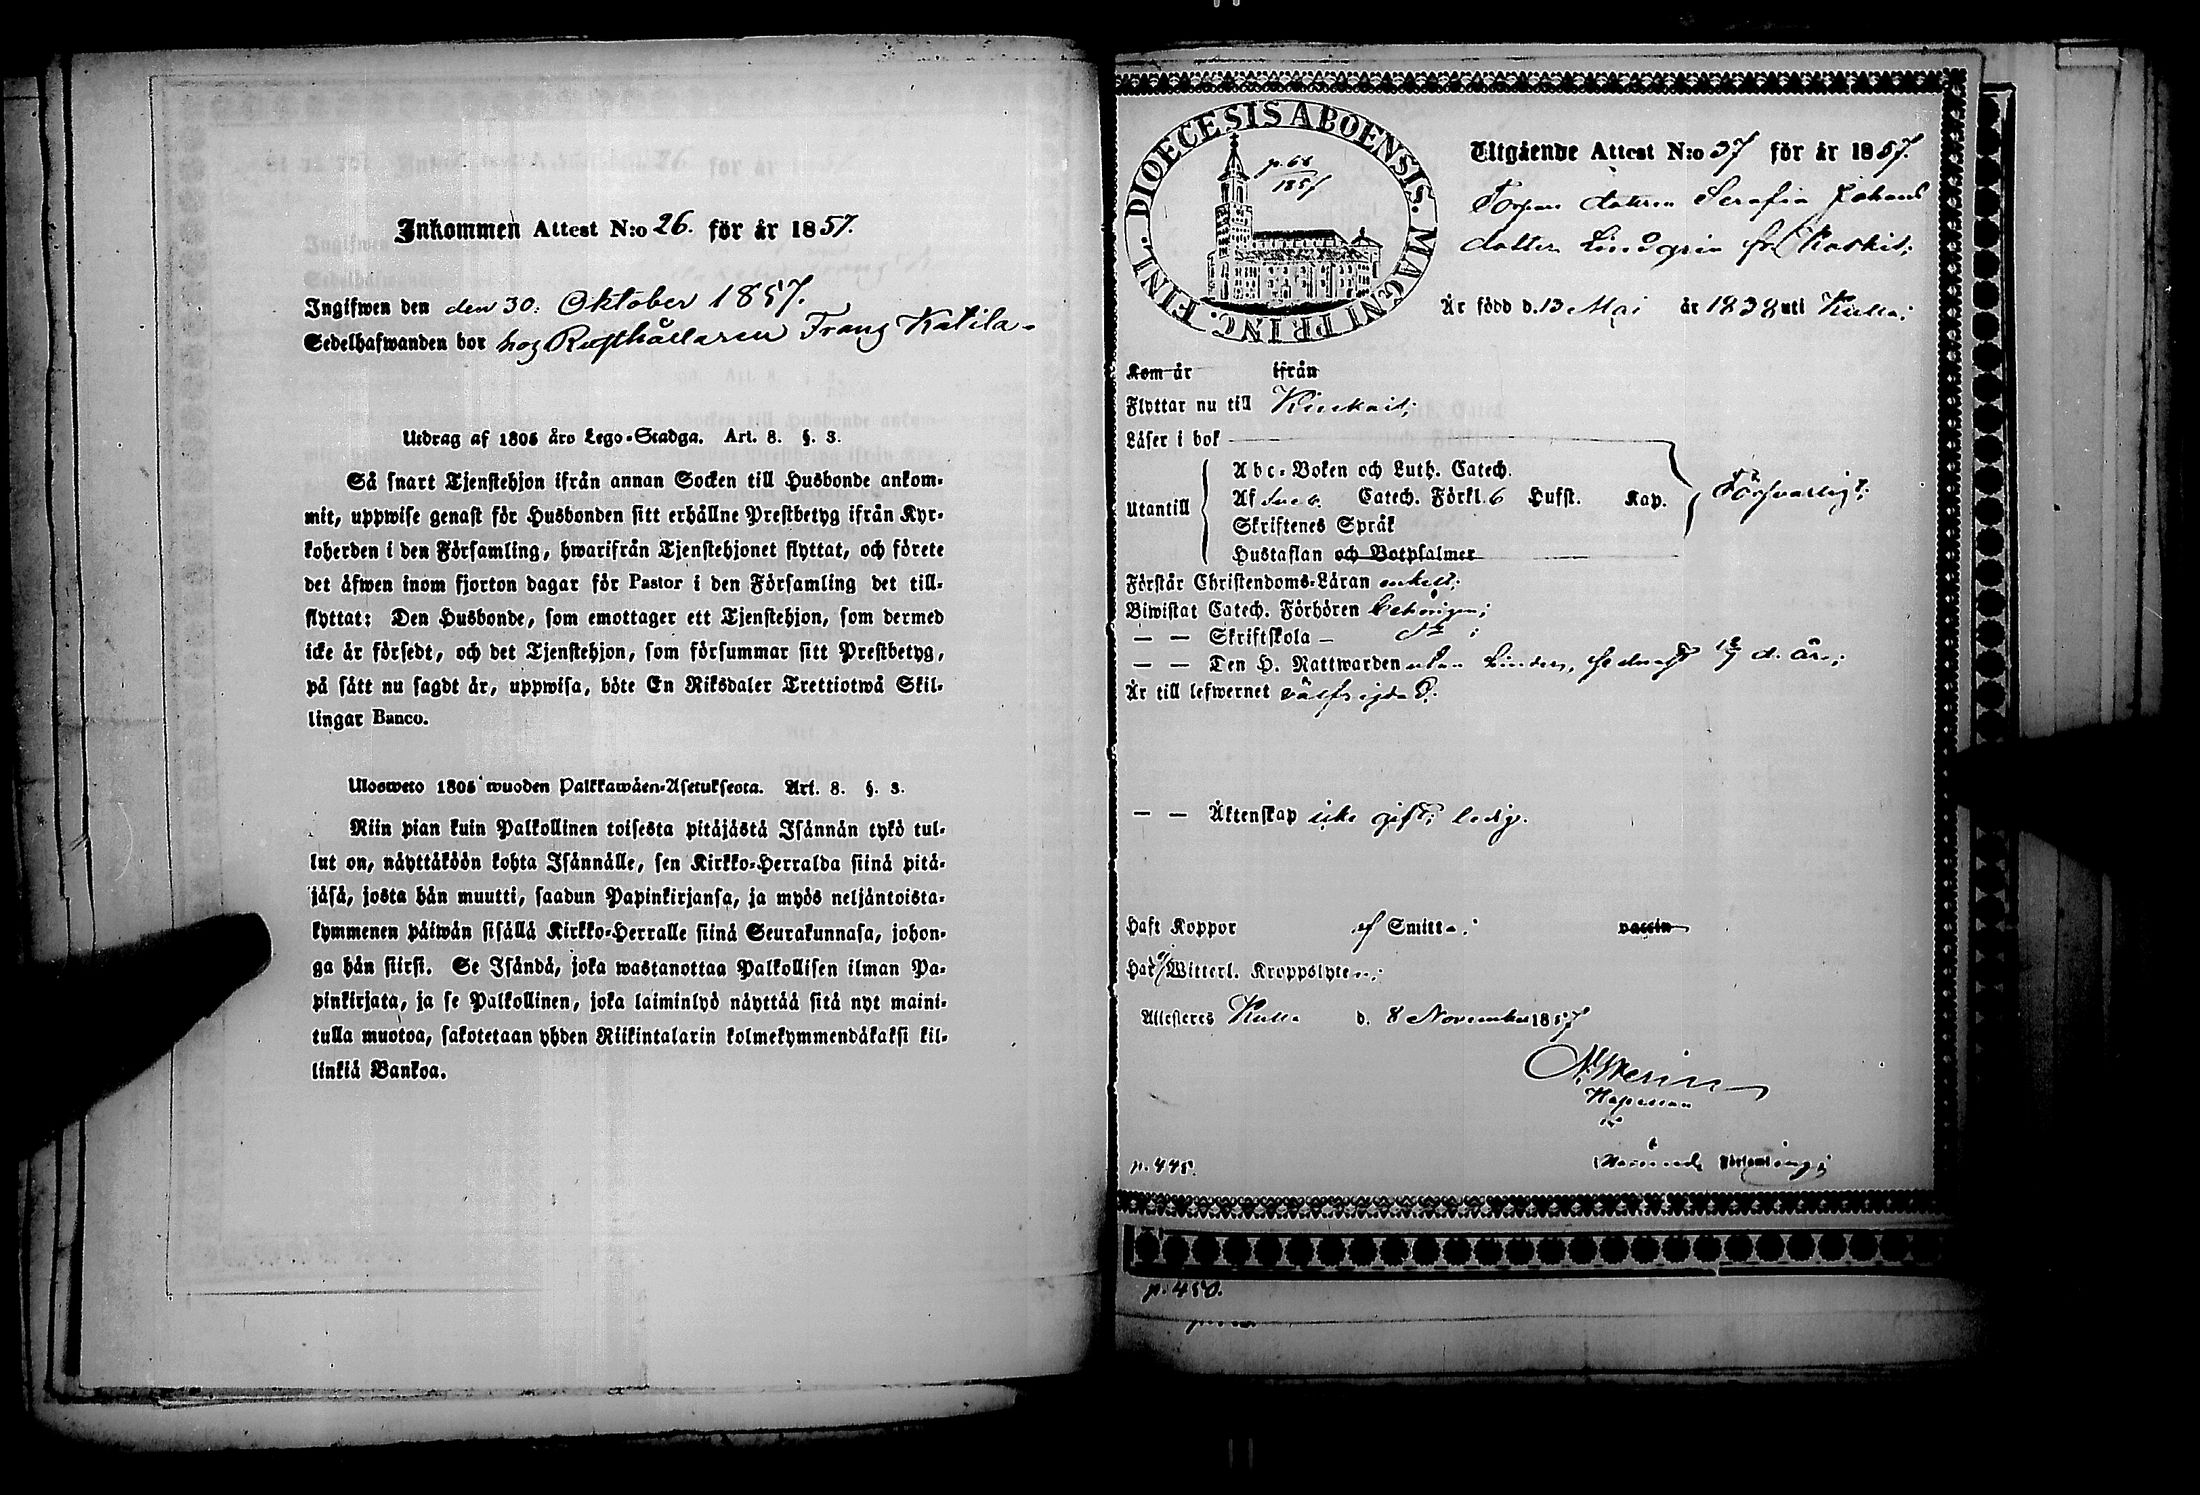 Inkommen Attest N:o 26. för år 1857.
Ingifwen den den 30. Oktober 1857.
Sedelhafwanden bor hos Rusthållaren Franz Katila.
Utdrag af 1805 års Lego-Stadga. Art. 8. §. 3.
Så snart Tjenstehjon ifrån annan Socken till Husbonde ankom-
mit, uppwise genast för Husbonden sitt erhållne Prestbetyg ifrån Kyr-
koherden i den Församling, hwarifrån Tjenstehjonet flyttat, och förete
det äfwen inom fjorton dagar för Pastor i den Församling det till-
flyttat: Den Husbonde, som emottager ett Tjenstehjon, som dermed
icke är försedt, och det Tjenstehjon, som försummar sitt Prestbetyg,
på sätt nu sagdt är, uppwisa, böte En Riksdaler Trettiotwå Skil-
lingar Banco.
Ulosweto 1805 wuoden Palkkawäen-Asetuksesta. Art. 8. §. 3.
Niin pian kuin Palkollinen toisesta pitäjästä Isännän tykö tul-
lut on, näyttäköön kohta Isännälle, sen Kirkko-Herralda siinä pitä-
jäsä, josta hän muutti, saadun Papinkirjansa, ja myös neljäntoista-
kymmenen päiwän sisällä Kirkko-Herralle siinä Seurakunnasa, johon-
ga hän siirsi. Se Isändä, joka wastanottaa Palkollisen ilman Pa-
pinkirjata, ja se Palkollinen, joka laiminlyö näyttää sitä nyt maini-
tulla muotoa, sakotetaan yhden Riikintalarin kolmekymmendäkaksi kil-
linkiä Bankoa.
DIOECESIS ABOENSIS. MAGNI PRINC. FINL.
p. 66
1857
Utgående Attest N:o 37 för år 1857.
Torpare dottren Serafia Johans
dotter Lindqrin fr. Koskis;
Är född d. 13 Maj år 1838 uti Kulla;
Kom år ifrån
Flyttar nu till Kiukais;
Läser i bok
Abc-Boken och Luth. Catech.
Utantill Af Sveb. Catech. Förkl. 6 Hufst. Kap. Försvarligt;
Skriftenes Språk
Hustaflan och Botpsalmer
Förstår Christendoms-Läran enkelt;
Biwistat Catech. Förhören behörigen;
— — Skriftskola — do;
— — Den H. Nattwarden utan hinder, d. år;
Är till lefwernet välfrejdad.
— — Äktenskap icke gift; ledig.
Haft Koppor af Smitta; vaccin
Har ej Witterl. Kroppslyten;
Attesteres Kulla d. 8 November 1857
Kapellan
i
Församling;
p. 448.
p. 450.